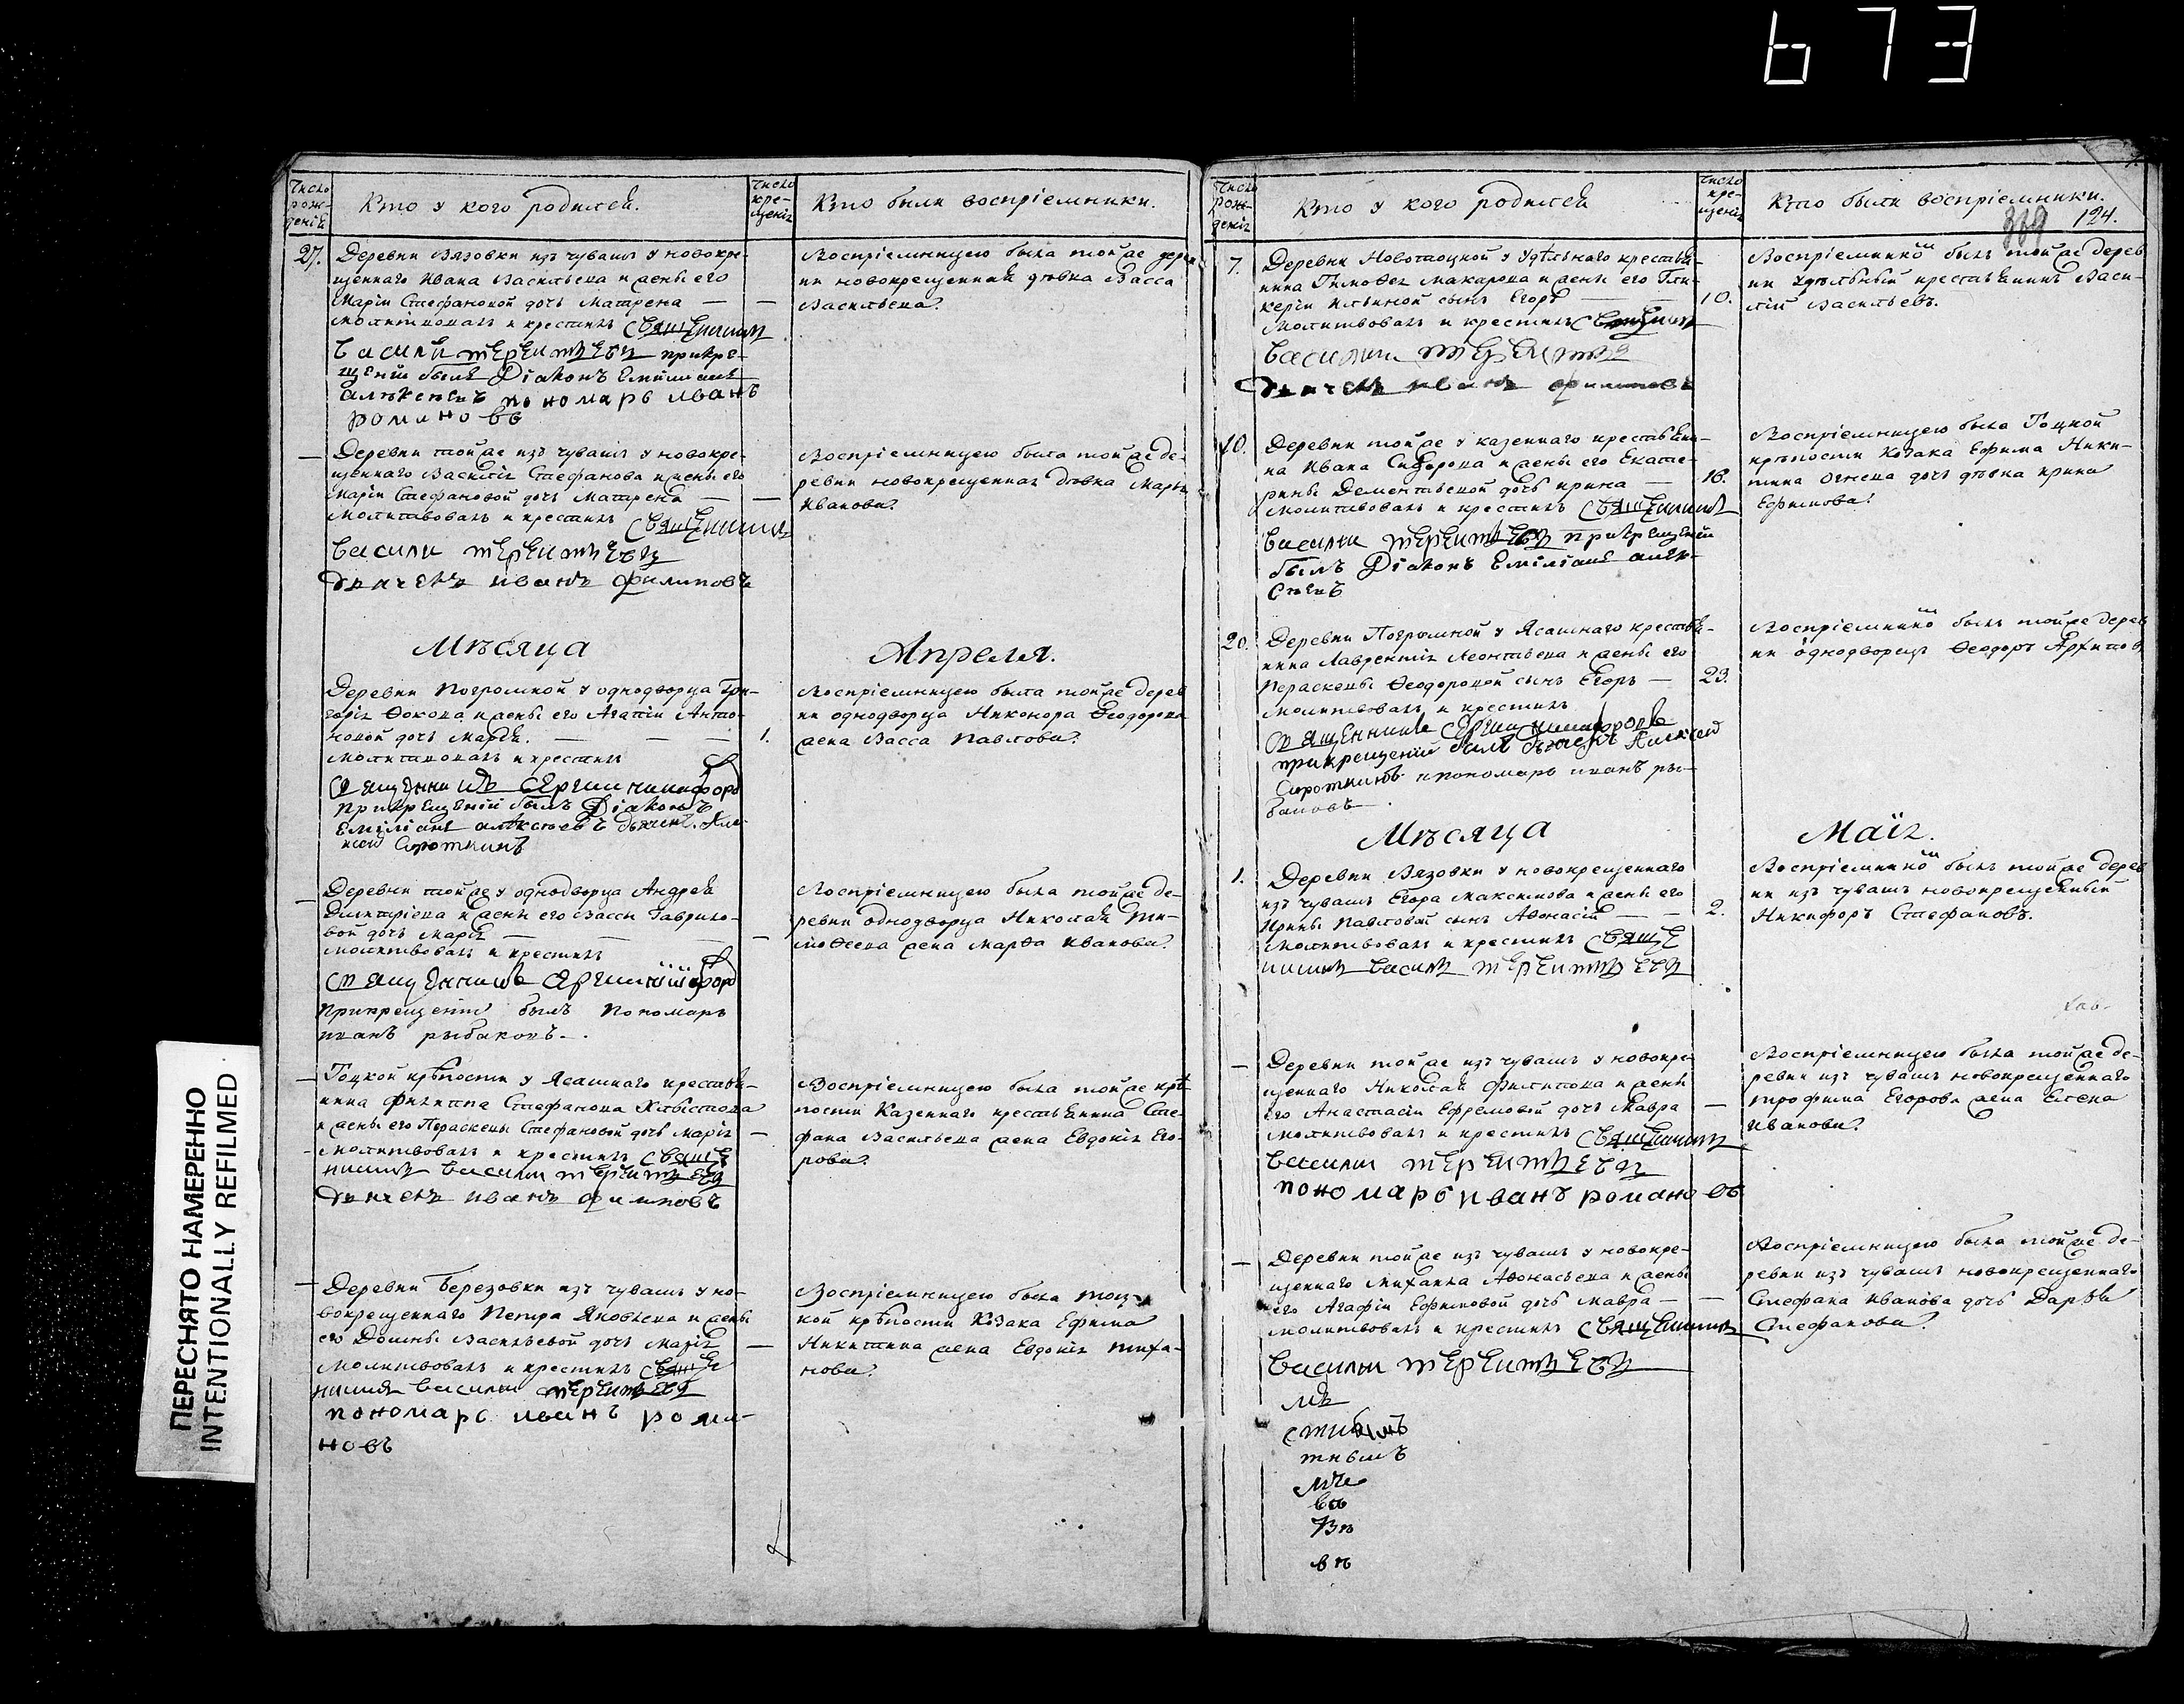 673
ПЕРЕСНЯТО НАМЕРЕННО
INTENTIONALLY REFILMED
Число рождения
Кто у кого родился.
Число крещенія
Кто были воспріемники.
27. Деревни Вязовки изъ чувашъ у новокре-
щеннаго Ивана Васильева и жены его
Маріи Стефановой дочь Матрена — —
молитвовалъ и крестилъ Священникъ
Василей Терентьевъ при кре-
щеніи былъ Діаконъ Емиліанъ
Алѣксѣевъ пономарь иванъ
романовъ
Воспріемницею была тойже дерев
ни новокрещенная дѣвка Васса
Васильева.
— Деревни тойже изъ чувашъ у новокре-
щеннаго Василія Стефанова и жены его
Маріи Стефановой дочь Матрена — —
молитвовалъ и крестилъ Священникъ
Василии Терентьевъ
дьячекъ иванъ филиповъ
Воспріемницею была тойже де-
ревни новокрещенная дѣвка Марья
Иванова.
Мѣсяца Апреля.
Деревни Погромной у однодворца Гри-
горія Фокова и жены его Агапіи Анто-
новой дочь Марія. — — — 1.
молитвовалъ и крестилъ
священникъ Сергии никифоров
при крещеніи былъ Діаконъ
Емиліанъ алѣксѣевъ дьячекъ Але-
ксей Сироткинъ
Воспріемницею была тойже дерев
ни однодворца Никонора Феодорова
жена Васса Павлова.
— Деревни тойже у однодворца Андрея
Димитріева и жены его Вассы Гаврило-
вой дочь Марія — — — —
молитвовалъ и крестилъ
священникъ Сергии никифоров
При крещеніи былъ пономарь
иванъ рыбаковъ.
Воспріемницею была тойже де-
ревни однодворца Николая Ти-
мофеева жена Марфа Иванова.
— Тоцкой крѣпости у Ясашнаго крестья-
нина Филиппа Стефанова Хлыстова
и жены его Параскевы Стефановой дочь Марія —
молитвовалъ и крестилъ Свяще
нникъ Василии Терентьевъ
дьячекъ иванъ филиповъ
Воспріемницею была тойже крѣ
пости Казеннаго крестьянина Сте-
фана Васильева жена Евдокія Его-
рова.
— Деревни Березовки изъ чувашъ у но-
вокрещеннаго Петра Яковлева и жены
его Домны Васильевой дочь Марія —
молитвовалъ и крестилъ Свяще
нникъ Василии Терентьевъ
пономарь иванъ рома-
новъ
Воспріемницею была Тоц-
кой крѣпости Козака Ефима
Никитина жена Евдокія Тиха-
нова.
Число рожденія
Кто у кого родился
Число крещенія
Кто были воспріемники.
124.
7. Деревни Новотоцкой у Удѣльнаго крестья-
нина Тимофея Макарова и жены его Гли-
керіи Ильиной сынъ Егоръ — — 10.
молитвовалъ и крестилъ Священникъ
Василии Терентьев
дьячекъ иванъ филиповъ
Воспріемникомъ былъ тойже дерев
ни Удѣльный крестьянинъ Васи-
лій Васильевъ.
10. Деревни тойже у казеннаго крестьяни-
на Ивана Сидорова и жены его Екате-
рины Дементьевой дочь Ирина — 16.
молитвовалъ и крестилъ Священникъ
Василии Терентьевъ при крещеніи
былъ Діаконъ Емиліанъ алек-
сѣевъ
Воспріемницею была Тоцкой
крѣпости Козака Ефима Ники-
тина дочь дѣвка Ирина
Ефимова.
20. Деревни Погромной у Ясашнаго крестья-
нина Лаврентія Леонтьева и жены его
Параскевы Феодоровой сынъ Егоръ — 23.
молитвовалъ и крестилъ
Священникъ Сергии никифоровъ
при крещеніи былъ дьячекъ Алексей
Сироткинъ и пономарь иванъ ры-
баковъ
Воспріемникомъ былъ тойже дерев
ни однодворецъ Феодоръ Архипов
Мѣсяца Маія.
1. Деревни Вязовки у новокрещеннаго
изъ чувашъ Егора Максимова и жены его
Ирины Павловой сынъ Афонасій — — 2.
молитвовалъ и крестилъ Свяще
нникъ Василъ Терентьевъ
Воспріемникомъ былъ тойже дерев
ни изъ чувашъ новокрещенный
Никифоръ Стефановъ.
— Деревни тойже изъ чувашъ у новокре-
щеннаго Николая Филипова и жены
его Анастасіи Ефремовой дочь Мавра —
молитвовалъ и крестилъ Священникъ
Василии Терентьевъ
пономарь иванъ романовъ
Воспріемницею была тойже де-
ревни изъ чувашъ новокрещеннаго
Трофима Егорова жена Елена
Иванова.
— Деревни тойже изъ чувашъ у новокре-
щеннаго Михаила Афонасьева и жены
его Агафіи Ефимовой дочь Мавра — —
молитвовалъ и крестилъ Священникъ
Василии Терентьевъ
Воспріемницею была тойже де-
ревни изъ чувашъ новокрещеннаго
Стефана Иванова дочь Дарья
Стефанова.